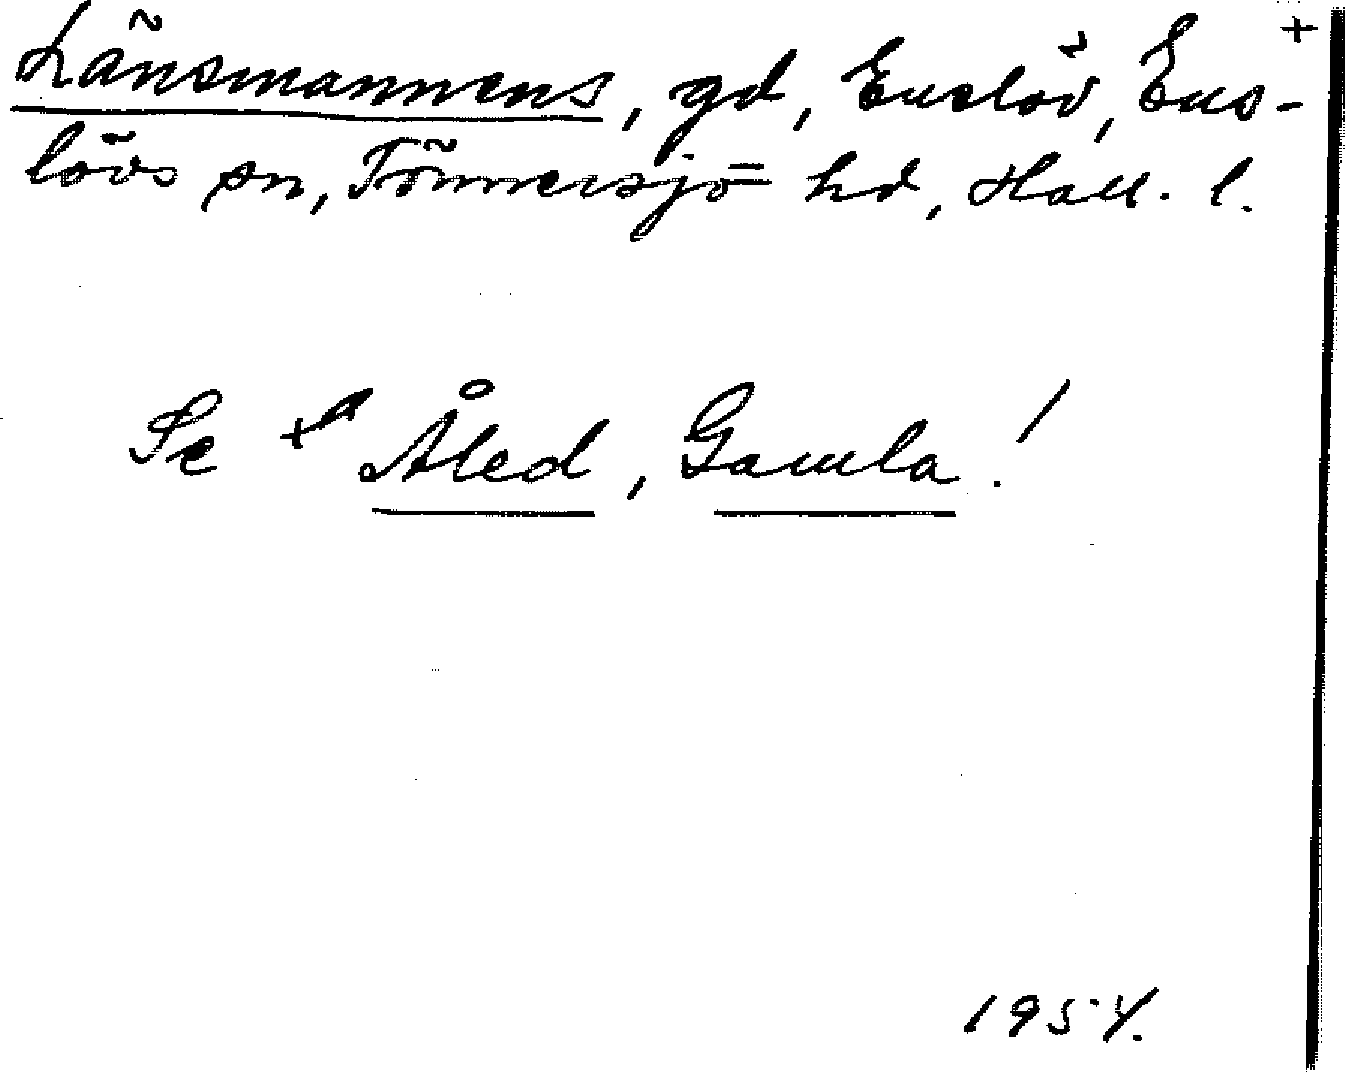 Länsmannens, gd, Enslöv, Ens- +
lövs sn, Tönnersjö hd, Hall. l.
Se + Åled, Gamla!
1954.